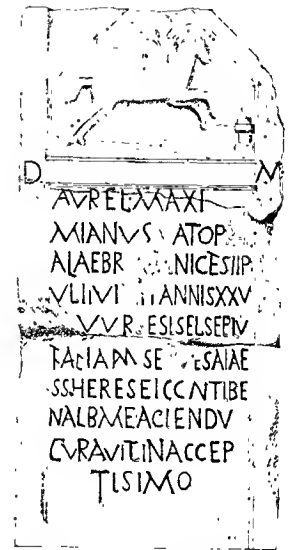 D M
AVREL MAXI
MIANVS ATOP
ALAEBR NICESIIP
VLIIVI ANNISXXV
VVR ESISELSEPTV
SE SAIAE
SSHERESEICCNTIBE
NALBMEACIENDV
CVRAVITINACCEP
TISIMO